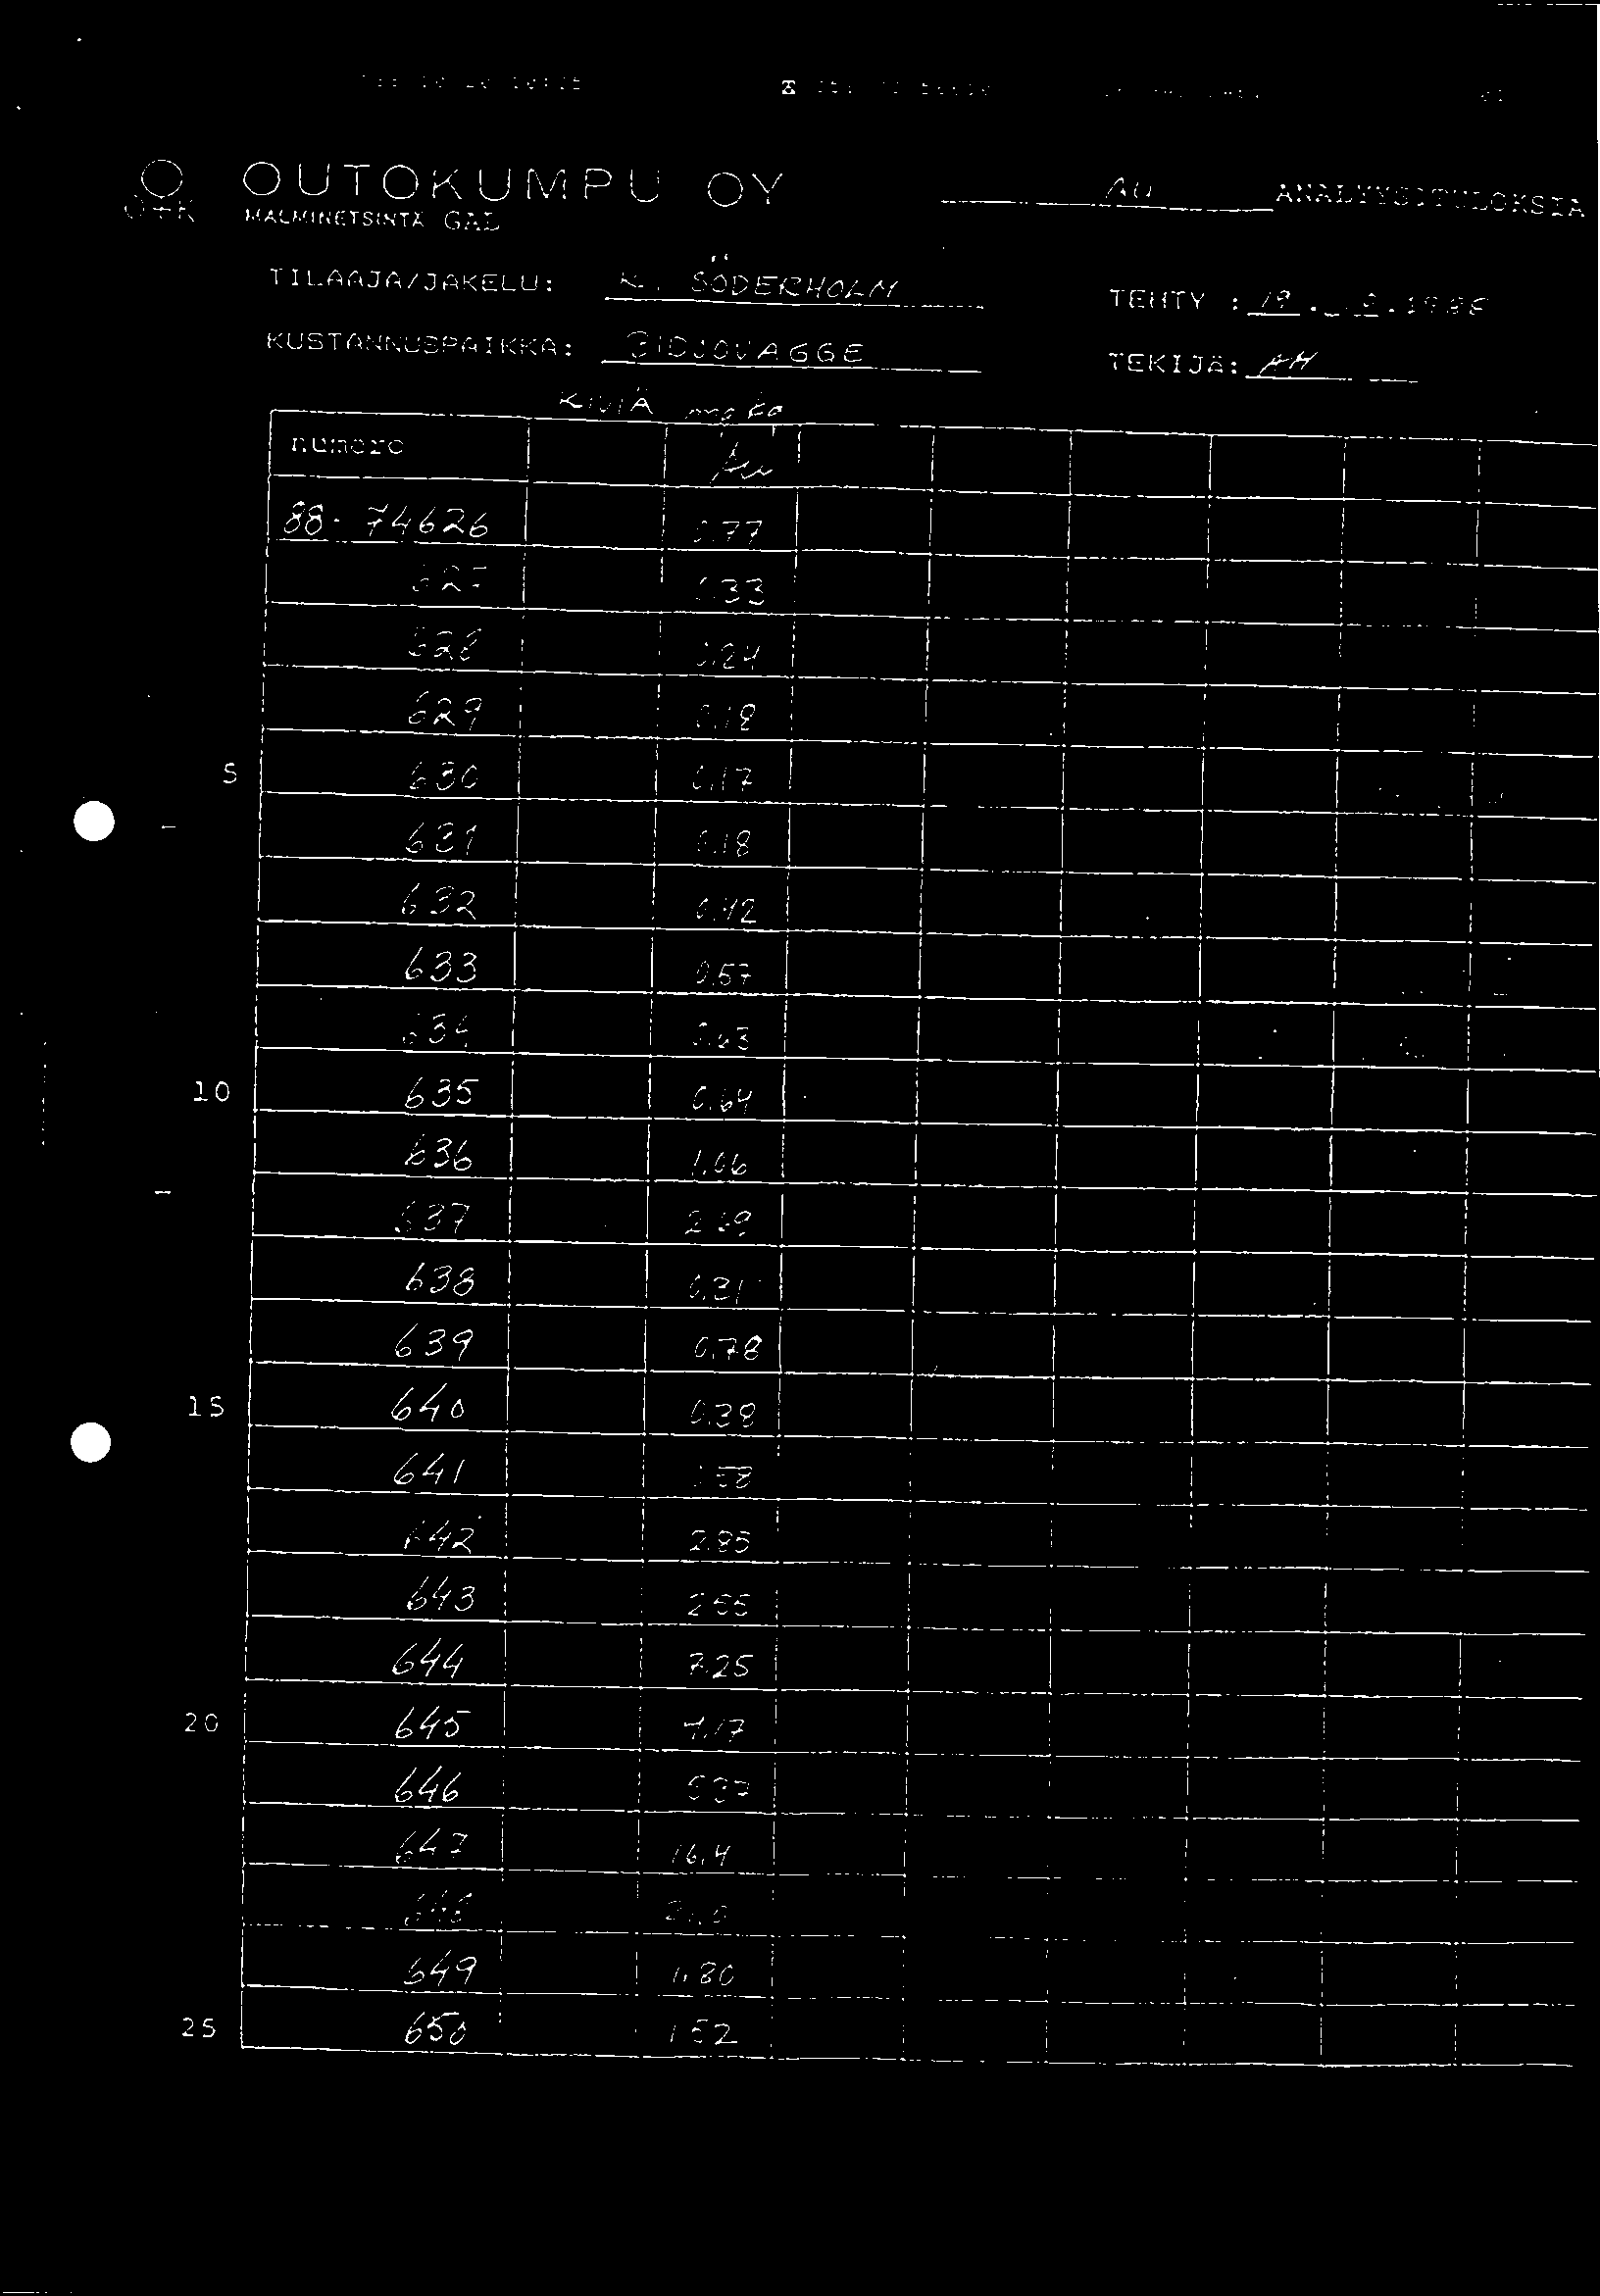 OUTOKUMPU OY
OTK
MALMINETSINTÄ GAL
Au ANALYYSITULOKSIA
TILAAJA/JAKELU: K. SÖDERHOLM
TEHTY : 19. .1988
KUSTANNUSPAIKKA: BIDJOVAGGE
TEKIJÄ: AH
KIVIÄ mg/kg
numero Au
88-74626 0.77
627 0.33
628 0.24
629 0.18
5 630 0.17
631 0.18
632 0.42
633 0.57
634 0.63
10 635 0.64
636 1.06
637
638 0.31
639 0.78
15 640 0.38
641
642 2.85
643 2.55
644
20 645 4.17
646 5.37
647 16.4
648
649 1.80
25 650 1.52